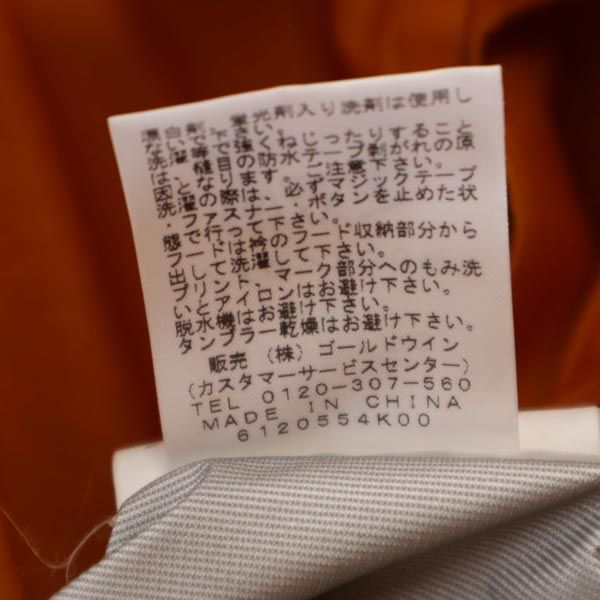 漂白剤、蛍光剤入り洗剤は使用し
ないで下さい。
洗濯等で強くねじったりすること
は、縫目の防水テープ剥がれの原
因となります。ご注意下さい。
洗濯の際は、必ずマジックテープ
・ファスナー・ボタンを止めた状
態で行って下さい。
フードは衿のフード収納部分から
出して洗濯して下さい。
プリント、マーク部分へのもみ洗
いとアイロンはお避け下さい。
脱水機はお避け下さい。
タンブラー乾燥はお避け下さい。
販売 (株) ゴールドウイン
(カスタマーサービスセンター)
TEL 0120-307-560
MADE IN CHINA
6120554K00